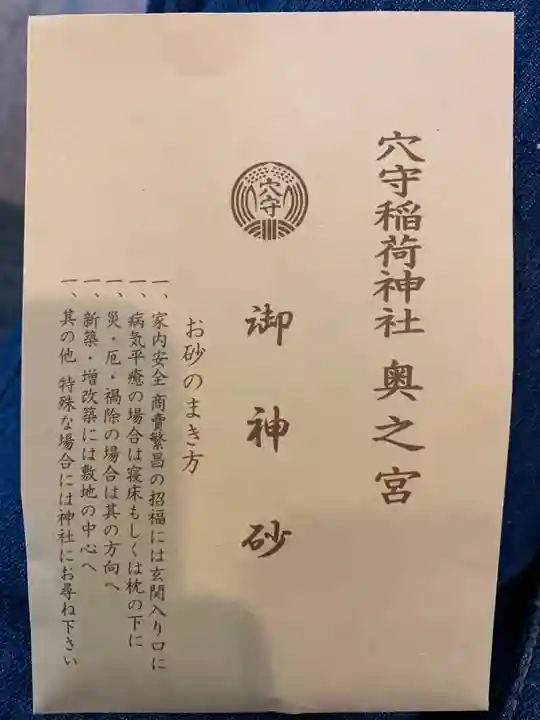 穴守稲荷神社 奥之宮
穴守
御神砂
お砂のまき方
一、家内安全 商賣繁昌の招福には玄関入り口に
一、病気平癒の場合は寝床もしくは枕の下に
一、災・厄・禍除の場合は其の方向へ
一、新築・増改築には敷地の中心へ
一、其の他 特殊な場合には神社にお尋ね下さい